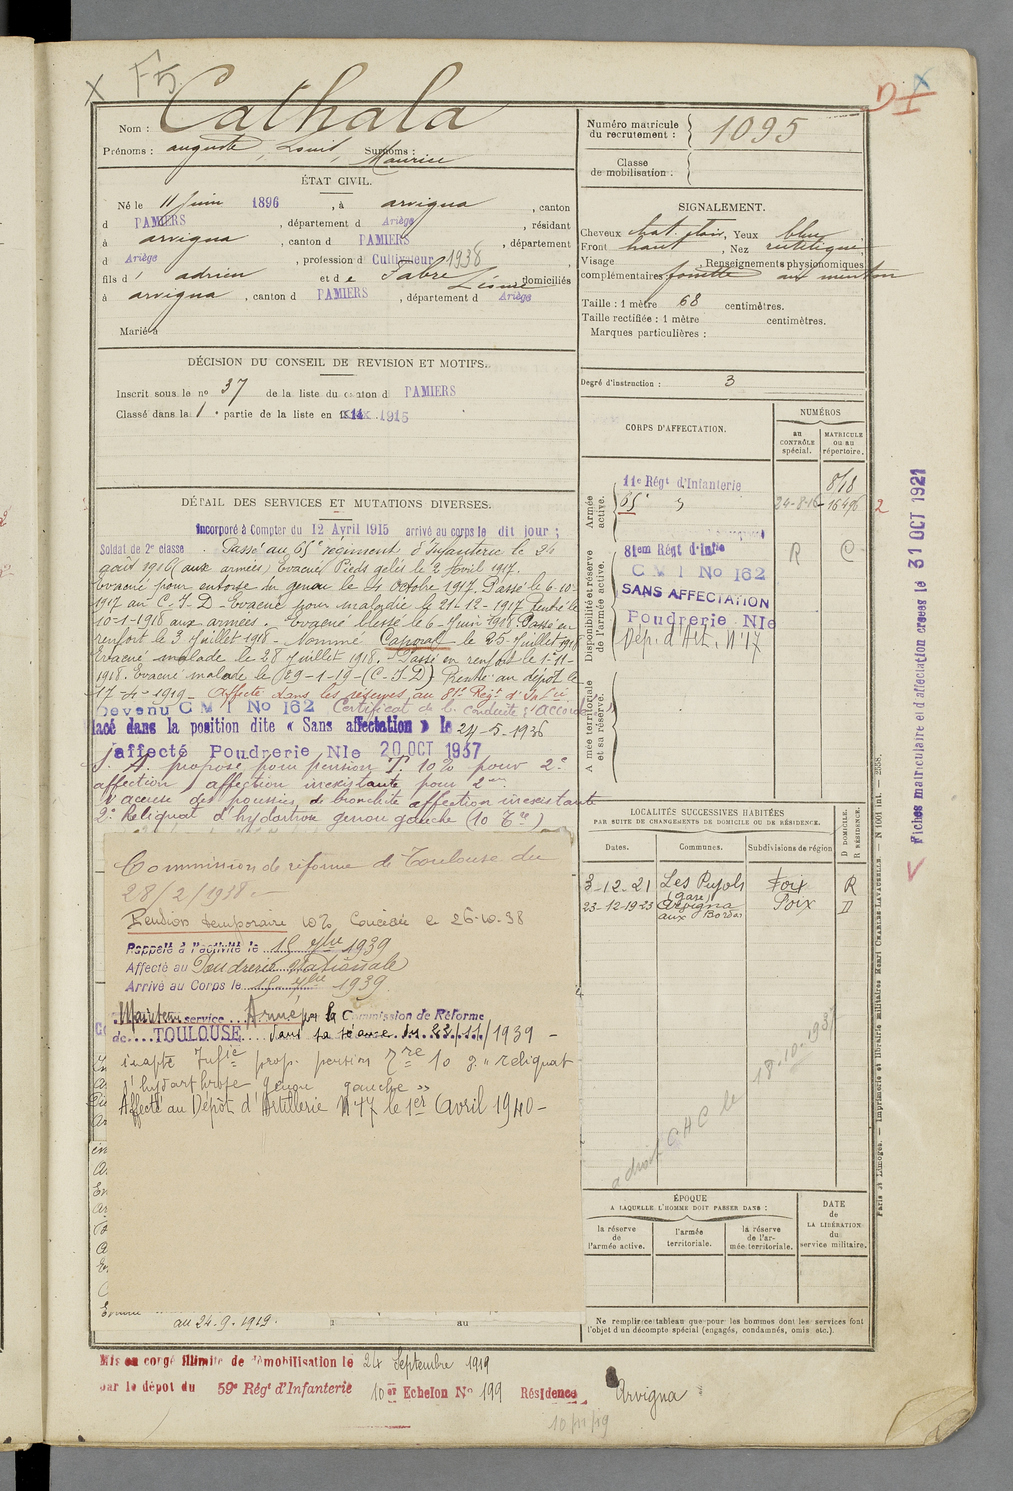 F5
Nom : Cathala
Prénoms : auguste, Louis, Surnoms : Maurice
Numéro matricule du recrutement : 1095
Classe de mobilisation :
ÉTAT CIVIL.
Né le 11 Juin 1896, à arvigna, canton
d PAMIERS, département d Ariège, résidant
à arvigna, canton d PAMIERS, département
d Ariège, profession d Cultivateur 1938
fils d' adrien et de Fabre domiciliés
à arvigna, canton d PAMIERS, département d Ariège
Marié à
SIGNALEMENT.
Cheveux chat. clair, Yeux bleus
Front haut, Nez rectiligne
Visage , Renseignements physionomiques
complémentaires fossette au menton
Taille : 1 mètre 68 centimètres.
Taille rectifiée : 1 mètre centimètres.
Marques particulières :
Degré d'instruction : 3
DÉCISION DU CONSEIL DE REVISION ET MOTIFS.
Inscrit sous le no 37 de la liste du canton d PAMIERS
Classé dans la 1e partie de la liste en 1915
CORPS D'AFFECTATION.
NUMÉROS
au CONTRÔLE spécial.
MATRICULE ou au répertoire.
Armée active.
11e Régt d'Infanterie 818
65e 24-8-16 16496
2
Disponibilité et réserve de l'armée active.
81em Régt d'Infie R C
C M I No 162
SANS AFFECTATION
Poudrerie Nle
Dép. d'Art. N°17
Armée territoriale et sa réserve.
DÉTAIL DES SERVICES ET MUTATIONS DIVERSES.
Incorporé à Compter du 12 Avril 1915 arrivé au corps le dit jour ;
Soldat de 2e classe. Passé au 65e régiment d'Infanterie le 24
août 1916 (aux armées) Evacué Pieds gelés le 2 Avril 1917.
Evacué pour entorse du genou le 4 Octobre 1917. Passé le 6-10-
1917 au C-I-D - Evacué pour maladie le 21-12-1917 Rentré le
10-1-1918 aux armées. Evacué blessé le 6-Juin 1918. Passé en
renfort le 3 Juillet 1918 - Nommé Caporal le 25-Juillet 1918
Evacué malade le 28 Juillet 1918. Passé en renfort le 1-11-
1918. Evacué malade le 29-1-19-(C-I-D) Rentré au dépôt le
17-4-1919. Affecté dans les réserves au 81e Régt d'Infie
Devenu C M I No 162 Certificat de b. conduite : "Accordé"
lacé dans la position dite « Sans affectation » le 24-5-1936
affecté Poudrerie Nle 20 OCT 1937
proposé pour pension T. 10% pour 2e
affection, affection inexistante pour
accuse des poussées de bronchite affection inexistante
2e Reliquat d'hydarthrose genou gauche (10 %)
Commission de réforme de Toulouse du
28/2/1938.-
Pension temporaire 10% Concédée le 26-10-38
Rappelé à l'activité le 15 7bre 1939
Affecté au Poudrerie Nationale
Arrivé au Corps le 15 7bre 1939
Maintenu service Armé par la Commission de Réforme
de TOULOUSE dans sa séance du 23/11/1939 -
inapte Infie prop. pension 10 % "reliquat
d'hydarthrose genou gauche"
Affecté au Dépôt d'Artillerie N°17 le 1er Avril 1940-
au 24.9.1919. au
LOCALITÉS SUCCESSIVES HABITÉES
PAR SUITE DE CHANGEMENTS DE DOMICILE OU DE RÉSIDENCE.
Dates. Communes. Subdivisions de région D DOMICILE. R RÉSIDENCE.
3-12-21 Les Pujols (gare) Foix R
23-12-1923 Arvigna aux Bordes Foix D
a droit C H C le 18-10-1937
ÉPOQUE
A LAQUELLE L'HOMME DOIT PASSER DANS :
la réserve de l'armée active.
l'armée territoriale.
la réserve de l'armée territoriale.
DATE de LA LIBÉRATION du service militaire.
Ne remplir ce tableau que pour les hommes dont les services font
l'objet d'un décompte spécial (engagés, condamnés, omis etc.).
Mis en congé illimité de démobilisation le 24 Septembre 1919
par le dépot du 59e Régt d'Infanterie 10er Echelon No 199 Résidence Arvigna
10/11/19
Fiches matriculaire et d'affectation créées le 31 OCT 1921
Paris et Limoges. — Imprimerie et librairie militaires Henri CHARLES-LAVAUZELLE. — N 1001 int. — 2558.